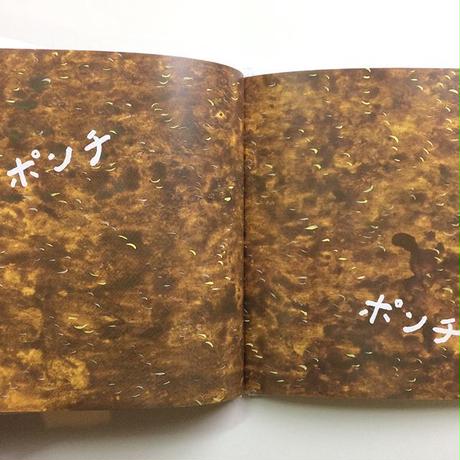 ポンチ
ポンチ